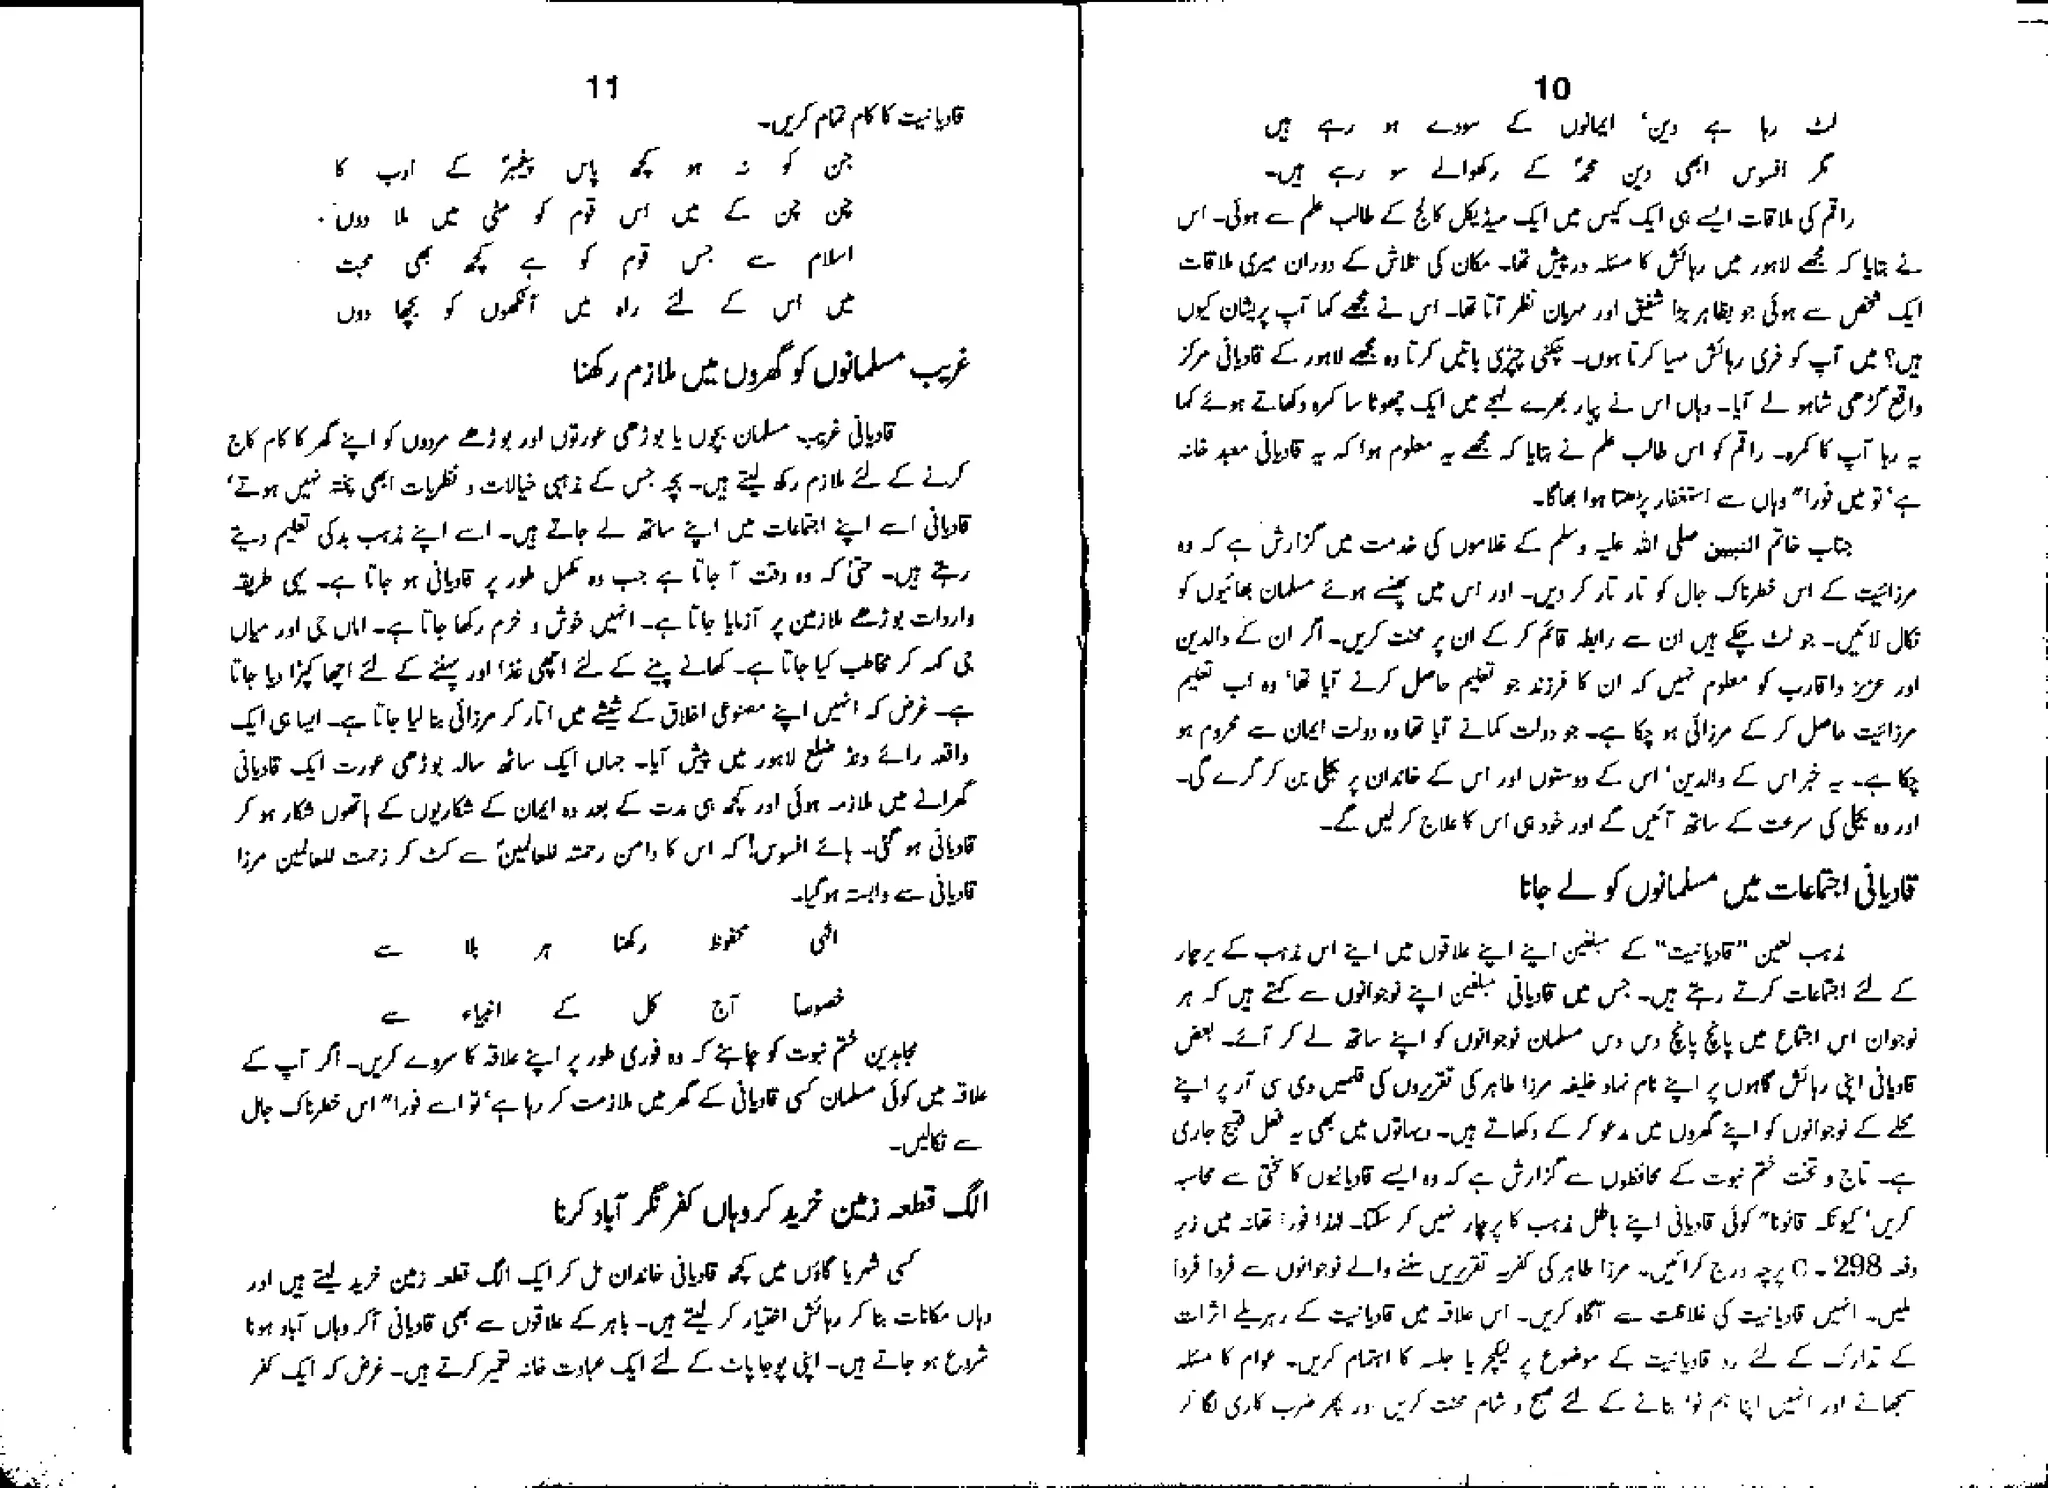 10
لٹ رہا ہے دین، ایمانوں کے سودے ہو رہے ہیں
مگر افسوس ابھی دین محمدؐ کے رکھوالے سو رہے ہیں۔
راقم کی ملاقات ایسے ہی ایک کیس میں ایک میڈیکل کالج کے طالب علم سے ہوئی۔ اس
نے بتایا کہ مجھے لاہور میں رہائش کا مسئلہ درپیش تھا۔ مکان کی تلاش کے دوران میری ملاقات
ایک شخص سے ہوئی جو بظاہر بڑا شفیق اور مہربان نظر آتا تھا۔ اس نے مجھے کہا آپ پریشان کیوں
ہیں؟ میں آپ کو فری رہائش مہیا کرتا ہوں۔ چکنی چپڑی باتیں کرتا وہ مجھے لاہور کے قادیانی مرکز
واقع گڑھی شاہو لے آیا۔ وہاں اس نے پیار بھرے لہجے میں ایک چھوٹا سا کمرہ دکھاتے ہوئے کہا
یہ رہا آپ کا کمرہ۔ راقم کو اس طالب علم نے بتایا کہ مجھے یہ معلوم ہوا کہ یہ قادیانی معبد خانہ
ہے، تو میں فورا" وہاں سے استغفار پڑھتا ہوا بھاگا۔
جناب خاتم النبیین صلی اللہ علیہ وسلم کے غلاموں کی خدمت میں گزارش ہے کہ وہ
مرزائیت کے اس خطرناک جال کو تار تار کر دیں۔ اور اس میں پھنسے ہوئے مسلمان بھائیوں کو
نکال لائیں۔ جو لٹ چکے ہیں ان سے رابطہ قائم کر کے ان پر محنت کریں۔ اگر ان کے والدین
اور عزیز و اقارب کو معلوم نہیں کہ ان کا فرزند جو تعلیم حاصل کرنے آیا تھا، وہ اب تعلیم
مرزائیت حاصل کر کے مرزائی ہو چکا ہے۔ جو دولت کمانے آیا تھا وہ دولت ایمان سے محروم ہو
چکا ہے۔ یہ خبر اس کے والدین، اس کے دوستوں اور اس کے خاندان پر بجلی بن کر گرے گی۔
اور وہ بجلی کی سرعت کے ساتھ آئیں گے اور خود ہی اس کا علاج کر لیں گے۔
قادیانی اجتماعات میں مسلمانوں کو لے جانا
مذہب لعین "قادیانیت" کے مبلغین اپنے اپنے علاقوں میں اپنے اس مذہب کے پرچار
کے لئے اجتماعات کرتے رہتے ہیں۔ جس میں قادیانی مبلغین اپنے نوجوانوں سے کہتے ہیں کہ ہر
نوجوان اس اجتماع میں پانچ پانچ دس دس مسلمان نوجوانوں کو اپنے ساتھ لے کر آئے۔ بعض
قادیانی اپنی رہائش گاہوں پر اپنے نام نہاد خلیفہ مرزا طاہر کی تقریروں کی فلمیں وی سی آر پر اپنے
محلے کے نوجوانوں کو اپنے گھروں میں مدعو کر کے دکھاتے ہیں۔ دیہاتوں میں بھی یہ فعل قبیح جاری
ہے۔ تاج و تخت ختم نبوت کے محافظوں سے گزارش ہے کہ وہ ایسے قادیانیوں کا سختی سے محاسبہ
کریں، کیونکہ قانونا" کوئی قادیانی اپنے باطل مذہب کا پرچار نہیں کر سکتا۔ لہٰذا فوراً تھانہ میں زیر
دفعہ 298 - C پرچہ درج کرائیں۔ مرزا طاہر کی کفریہ تقریریں سننے والے نوجوانوں سے فرداً فرداً
ملیں۔ انہیں قادیانیت کی غلاظت سے آگاہ کریں۔ اس علاقہ میں قادیانیت کے زہریلے اثرات
کے تدارک کے لئے رد قادیانیت کے موضوع پر لیکچر یا جلسہ کا اہتمام کریں۔ عوام کا مسئلہ
سمجھانے اور انہیں اپنا ہم نوا بنانے کے لئے صبح و شام محنت کریں اور پھر ضرب کاری لگا کر
11
قادیانیت کا کام تمام کریں۔
جن کو نہ ہو کچھ پاس پیغمبرؐ کے ادب کا
چن چن کے میں اس قوم کو مٹی میں ملا دوں
اسلام سے جس قوم کو ہے کچھ بھی محبت
میں اس کے لئے راہ میں آنکھوں کو بچھا دوں
غریب مسلمانوں کو گھروں میں ملازم رکھنا
قادیانی غریب مسلمان بچوں یا بوڑھی عورتوں اور بوڑھے مردوں کو اپنے گھر کا کام کاج
کرنے کے لئے ملازم رکھ لیتے ہیں۔ بچہ جس کے مذہبی خیالات و نظریات ابھی پختہ نہیں ہوتے،
قادیانی اسے اپنے اجتماعات میں اپنے ساتھ لے جاتے ہیں۔ اسے اپنے مذہب بد کی تعلیم دیتے
رہتے ہیں۔ حتیٰ کہ وہ وقت آ جاتا ہے جب وہ مکمل طور پر قادیانی ہو جاتا ہے۔ یہی طریقہ
واردات بوڑھے ملازمین پر آزمایا جاتا ہے۔ انہیں خوش و خرم رکھا جاتا ہے۔ اماں جی اور میاں
جی کہہ کر مخاطب کیا جاتا ہے۔ کھانے پینے کے لئے اچھی غذا اور پہننے کے لئے اچھا کپڑا دیا جاتا
ہے۔ غرض کہ انہیں اپنے مصنوعی اخلاق کے شیشے میں اتار کر مرزائی بنا لیا جاتا ہے۔ ایسا ہی ایک
واقعہ رائے ونڈ ضلع لاہور میں پیش آیا۔ جہاں ایک ساٹھ سالہ بوڑھی عورت ایک قادیانی
گھرانے میں ملازمہ ہوئی اور کچھ ہی مدت کے بعد وہ ایمان کے شکاریوں کے ہاتھوں شکار ہو کر
قادیانی ہو گئی۔ ہائے افسوس! کہ اس کا دامن رحمتہ للعالمینؐ سے کٹ کر زحمت للعالمین مرزا
قادیانی سے وابستہ ہو گیا۔
الٰہی محفوظ رکھنا ہر بلا سے
خصوصاً آج کل کے انبیاء سے
مجاہدین ختم نبوت کو چاہئے کہ وہ فوری طور پر اپنے علاقہ کا سروے کریں۔ اگر آپ کے
علاقہ میں کوئی مسلمان کسی قادیانی کے گھر میں ملازمت کر رہا ہے، تو اسے فورا" اس خطرناک جال
سے نکالیں۔
الگ قطعہ زمین خرید کر وہاں کفر نگر آباد کرنا
کسی شہر یا گاؤں میں کچھ قادیانی خاندان مل کر ایک الگ قطعہ زمین خرید لیتے ہیں اور
وہاں مکانات بنا کر رہائش اختیار کر لیتے ہیں۔ باہر کے علاقوں سے بھی قادیانی آکر وہاں آباد ہونا
شروع ہو جاتے ہیں۔ اپنی پوجا پاٹ کے لئے ایک عبادت خانہ تعمیر کرتے ہیں۔ غرض کہ ایک کفر